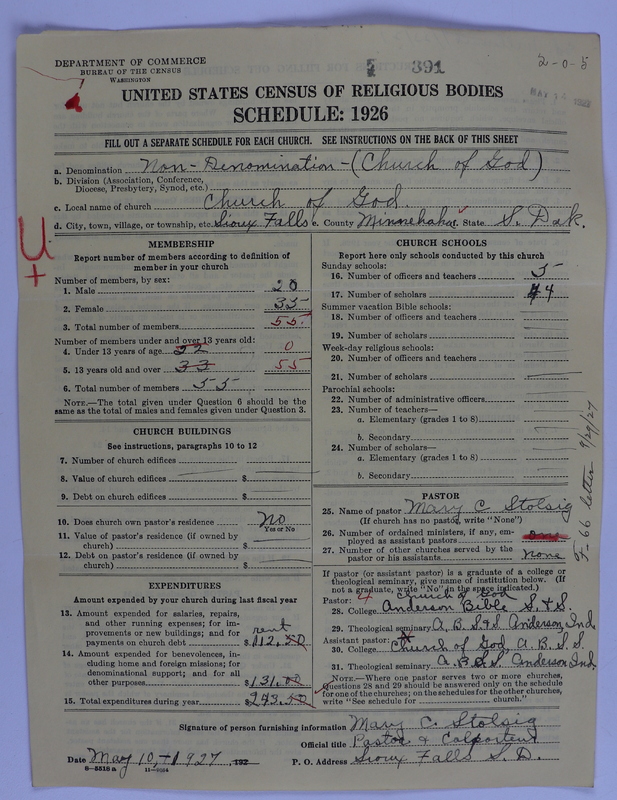 DEPARTMENT OF COMMERCE
BUREAU OF THE CENSUS
WASHINGTON
391
2-0-5
UNITED STATES CENSUS OF RELIGIOUS BODIES
SCHEDULE: 1926
FILL OUT A SEPARATE SCHEDULE FOR EACH CHURCH. SEE INSTRUCTIONS ON THE BACK OF THIS SHEET
a. Denomination Non-Denomination-(Church of God)
b. Division (Association, Conference, Diocese, Presbytery, Synod, etc.)
c. Local name of church Church of God.
d. City, town, village, or township, etc. Sioux Falls e. County Minnehaha f. State S. Dak.
U
+
MEMBERSHIP
Report number of members according to definition of
member in your church
Number of members, by sex:
1. Male 20
2. Female 35
3. Total number of members 55
Number of members under and over 13 years old:
4. Under 13 years of age 22 0
5. 13 years old and over 33 55
6. Total number of members 55
NOTE.—The total given under Question 6 should be
same as the total of males and females given under Question 3.
CHURCH BUILDINGS
See instructions, paragraphs 10 to 12
7. Number of church edifices
8. Value of church edifices $
9. Debt on church edifices $
10. Does church own pastor's residence No
Yes or No
11. Value of pastor's residence (if owned by
church) $
12. Debt on pastor's residence (if owned by
church) $
EXPENDITURES
Amount expended by your church during last fiscal year
13. Amount expended for salaries, repairs,
and other running expenses; for im-
provements or new buildings; and for
payments on church debt rent $112.50
14. Amount expended for benevolences, in-
cluding home and foreign missions; for
denominational support; and for all
other purposes $131.00
15. Total expenditures during year $243.50
CHURCH SCHOOLS
Report here only schools conducted by this church
Sunday schools:
16. Number of officers and teachers 5
17. Number of scholars 44
Summer vacation Bible schools:
18. Number of officers and teachers
19. Number of scholars
Week-day religious schools:
20. Number of officers and teachers
21. Number of scholars
Parochial schools:
22. Number of administrative officers
23. Number of teachers—
a. Elementary (grades 1 to 8)
b. Secondary
24. Number of scholars—
a. Elementary (grades 1 to 8)
b. Secondary
PASTOR
25. Name of pastor Mary C Stolsig
(If church has no pastor, write "None")
26. Number of ordained ministers, if any, em-
ployed as assistant pastors
27. Number of other churches served by the
pastor or his assistants none
If pastor (or assistant pastor) is a graduate of a college or
theological seminary, give name of institution below. (If
not a graduate, write "No" in the space indicated.)
Pastor: Church of God
28. College Anderson Bible S. & S.
29. Theological seminary A. B. S & S Anderson, Ind.
Assistant pastor:
30. College Church of God, A. B. S. S.
31. Theological seminary A. B. & S. Anderson Ind.
NOTE.—Where one pastor serves two or more churches,
Questions 28 and 29 should be answered only on the schedule
for one of the churches; on the schedules for the other churches,
write "See schedule for church."
F. 66 letter 9/29/27
Signature of person furnishing information Mary C. Stolsig
Official title Pastor & Colporteur
Date May 10, 1927, 192
P. O. Address Sioux Falls S. D.
8-5518 a